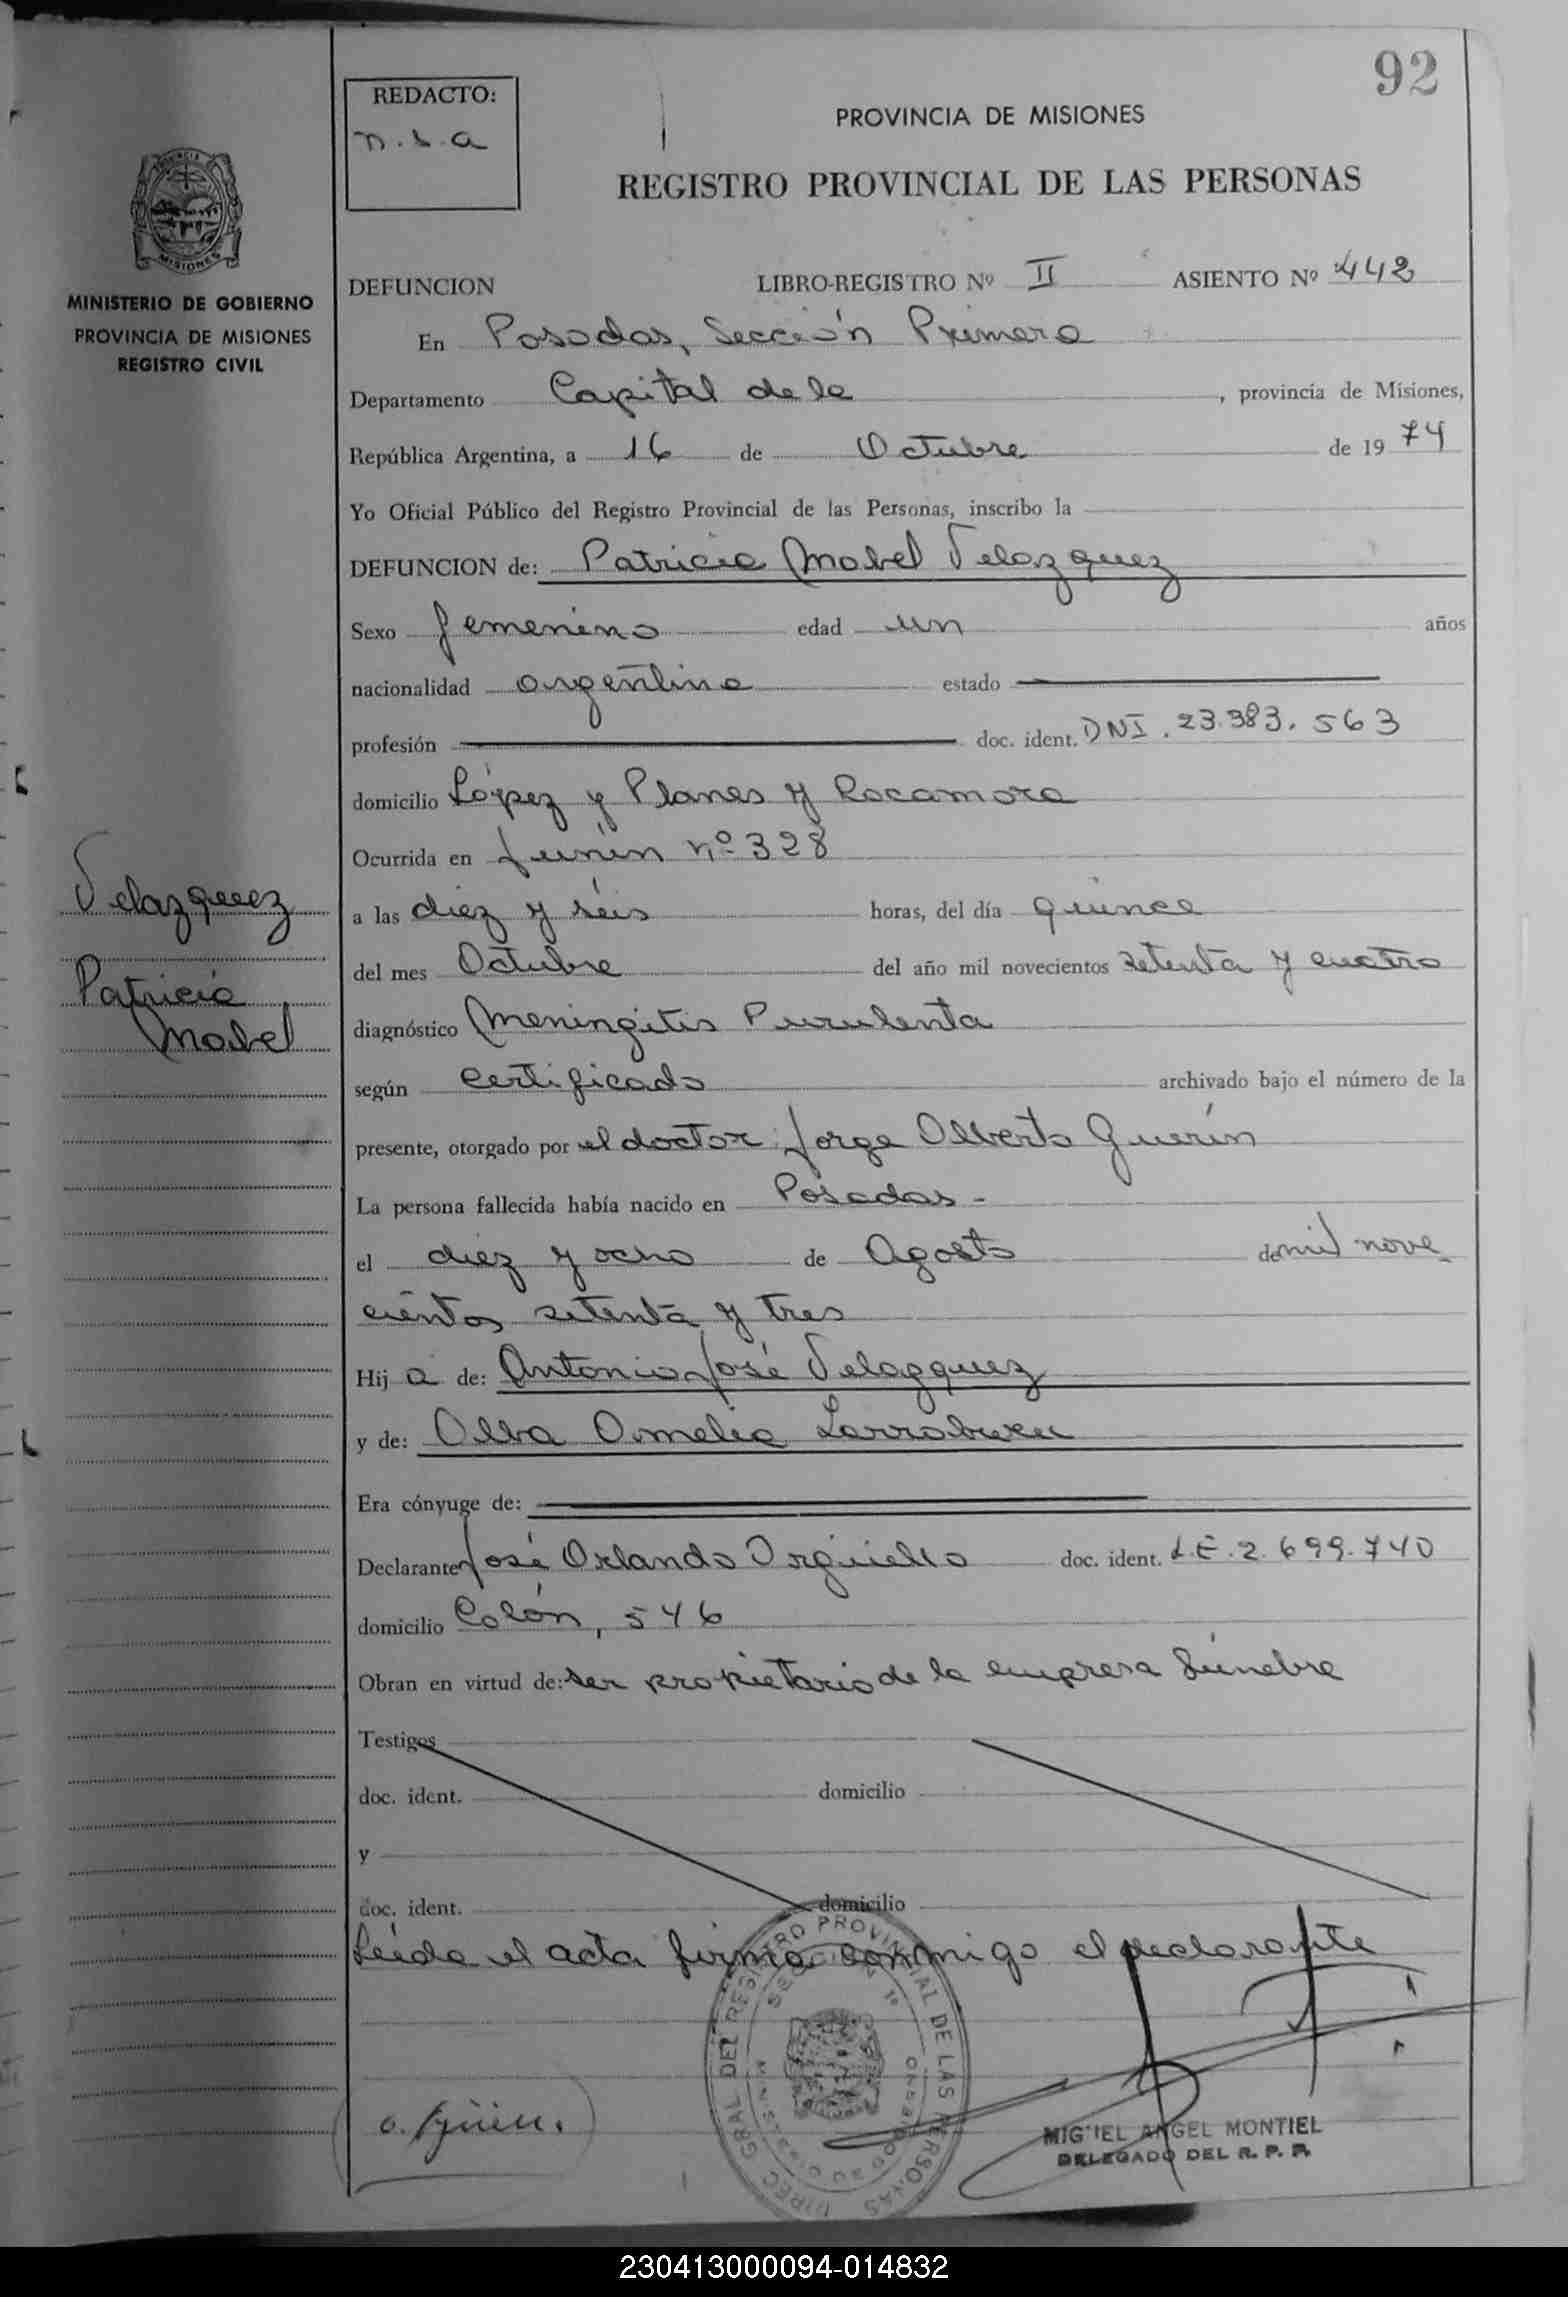 92
REDACTO:
n.s.a
PROVINCIA DE MISIONES
REGISTRO PROVINCIAL DE LAS PERSONAS
MISIONES
MINISTERIO DE GOBIERNO
PROVINCIA DE MISIONES
REGISTRO CIVIL
DEFUNCION LIBRO-REGISTRO Nº II ASIENTO Nº 442
En Posadas, Sección Primera
Departamento Capital de la , provincia de Misiones,
República Argentina, a 16 de Octubre de 1974
Yo Oficial Público del Registro Provincial de las Personas, inscribo la
DEFUNCION de: Patricia Mabel Velazquez
Sexo femenino edad un años
nacionalidad argentina estado
profesión doc. ident. DNI. 23.383.563
domicilio López y Planes y Rocamora
Ocurrida en Junín nº 328
a las diez y séis horas, del día quince
del mes Octubre del año mil novecientos setenta y cuatro
diagnóstico Meningitis Purulenta
según certificado archivado bajo el número de la
presente, otorgado por el doctor: Jorge Alberto Guerín
La persona fallecida había nacido en Posadas-
el diez y ocho de Agosto de mil nove
cientos setenta y tres
Hija de: Antonio José Velazquez
y de: Alba Amelia
Era cónyuge de:
Declarante José Orlando doc. ident. L.E. 2.699.740
domicilio Colón, 546
Obran en virtud de: ser propietario de la empresa fúnebre
Testigos
doc. ident. domicilio
y
doc. ident. domicilio
Leida el acta firma conmigo el declarante
Velazquez
Patricia
Mabel
MIGUEL ANGEL MONTIEL
DELEGADO DEL R. P. P.
230413000094-014832